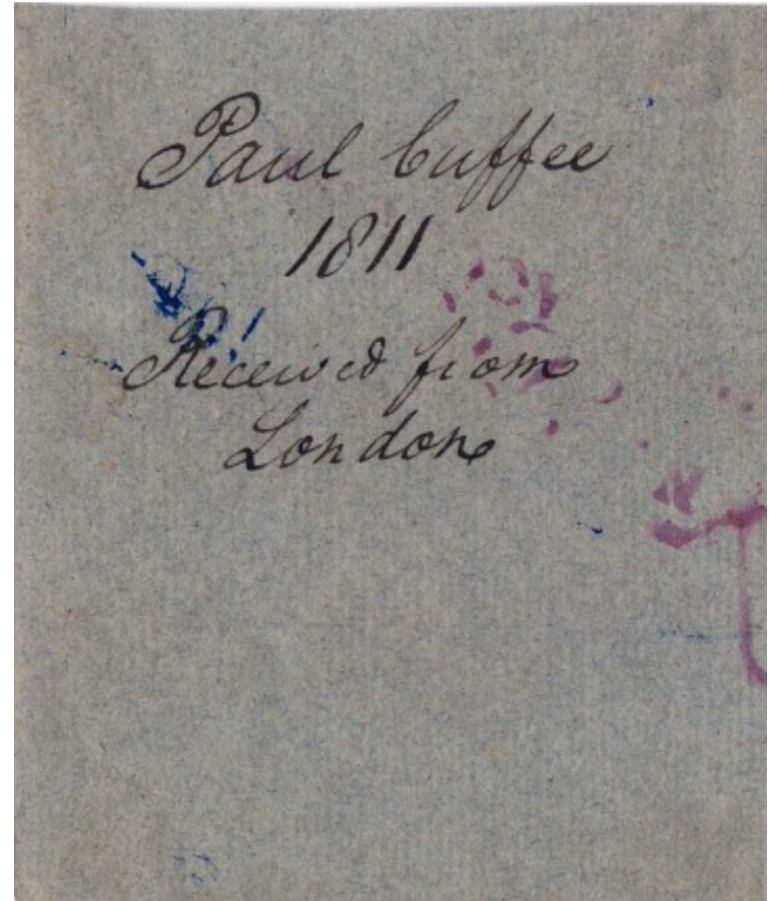 Paul Cuffee
1811
Received from
London